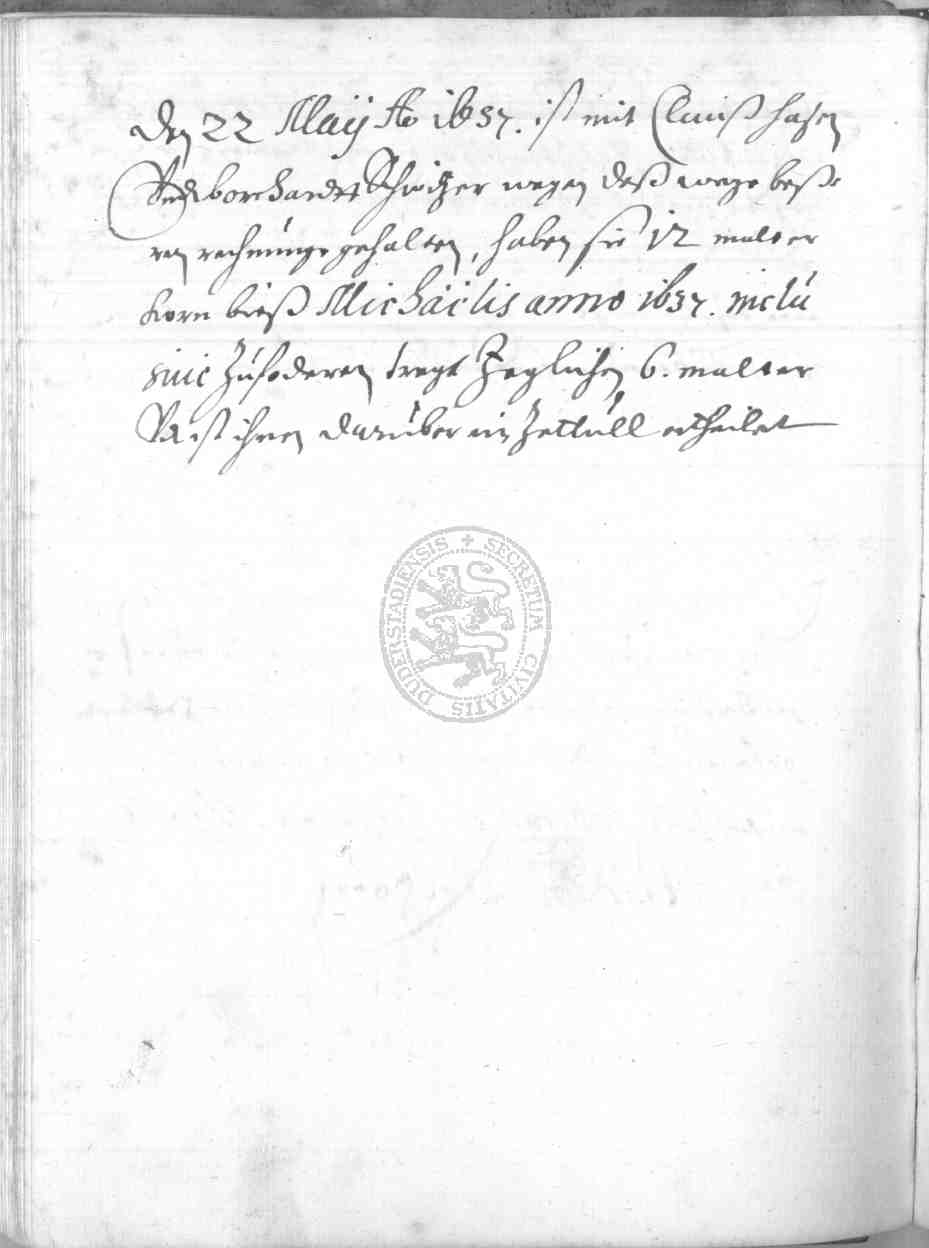 Den 22 Maÿ Ao 1637. ist mit Clauß hasen
Vnd borchardt Schwitzer wegen deß wege beße
ren rechnunge gehalten, haben sie 12 malter
korn bieß Michäelis anno 1637. inclu
siuè zufoderen tregt Jeglichen 6. malter
ist ihnen darüber ein Zettull ertheilet
SECRETUM CIVITATIS DUDERSTADIENSIS